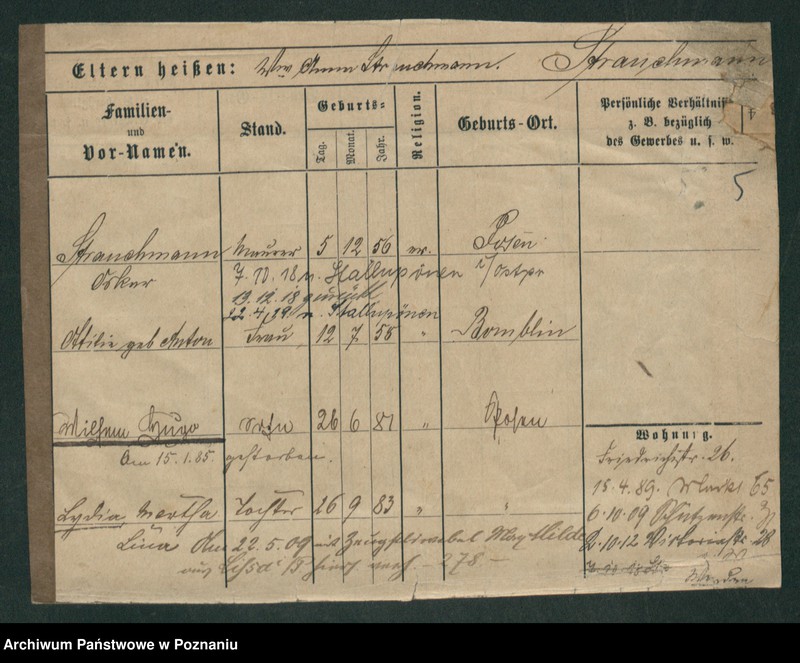 Eltern heißen: Anna Strauchmann. Strauchmann
Familien- und Vor-Namen.
Stand.
Geburts-
Tag.
Monat.
Jahr.
Religion.
Geburts-Ort.
Persönliche Verhältnis
z. B. bezüglich
des Gewerbes u. s. w.
5
Strauchmann Maurer 5 12 56 ev. Posen
Oskar 7. 10. 18 n. Stallupönen i/Ostpr
13.12.18 zurück
22.4.19 n. Stallupönen
Ottilie geb Anton Frau 12 7 58 " Bomblin
Wilhelm Hugo Sohn 26 6 81 " Posen
Am 15.1.85 gestorben.
Wohnung.
Friedrichstr. 26.
Lydia Martha Tochter 26 9 83 " "
Lina Am 22.5.09 mit
aus hier verh. - 278 -
15.4.89. Markt 65
6.10.09 Schützenstr.
2.10.12 Victoriastr. 28
Archiwum Państwowe w Poznaniu